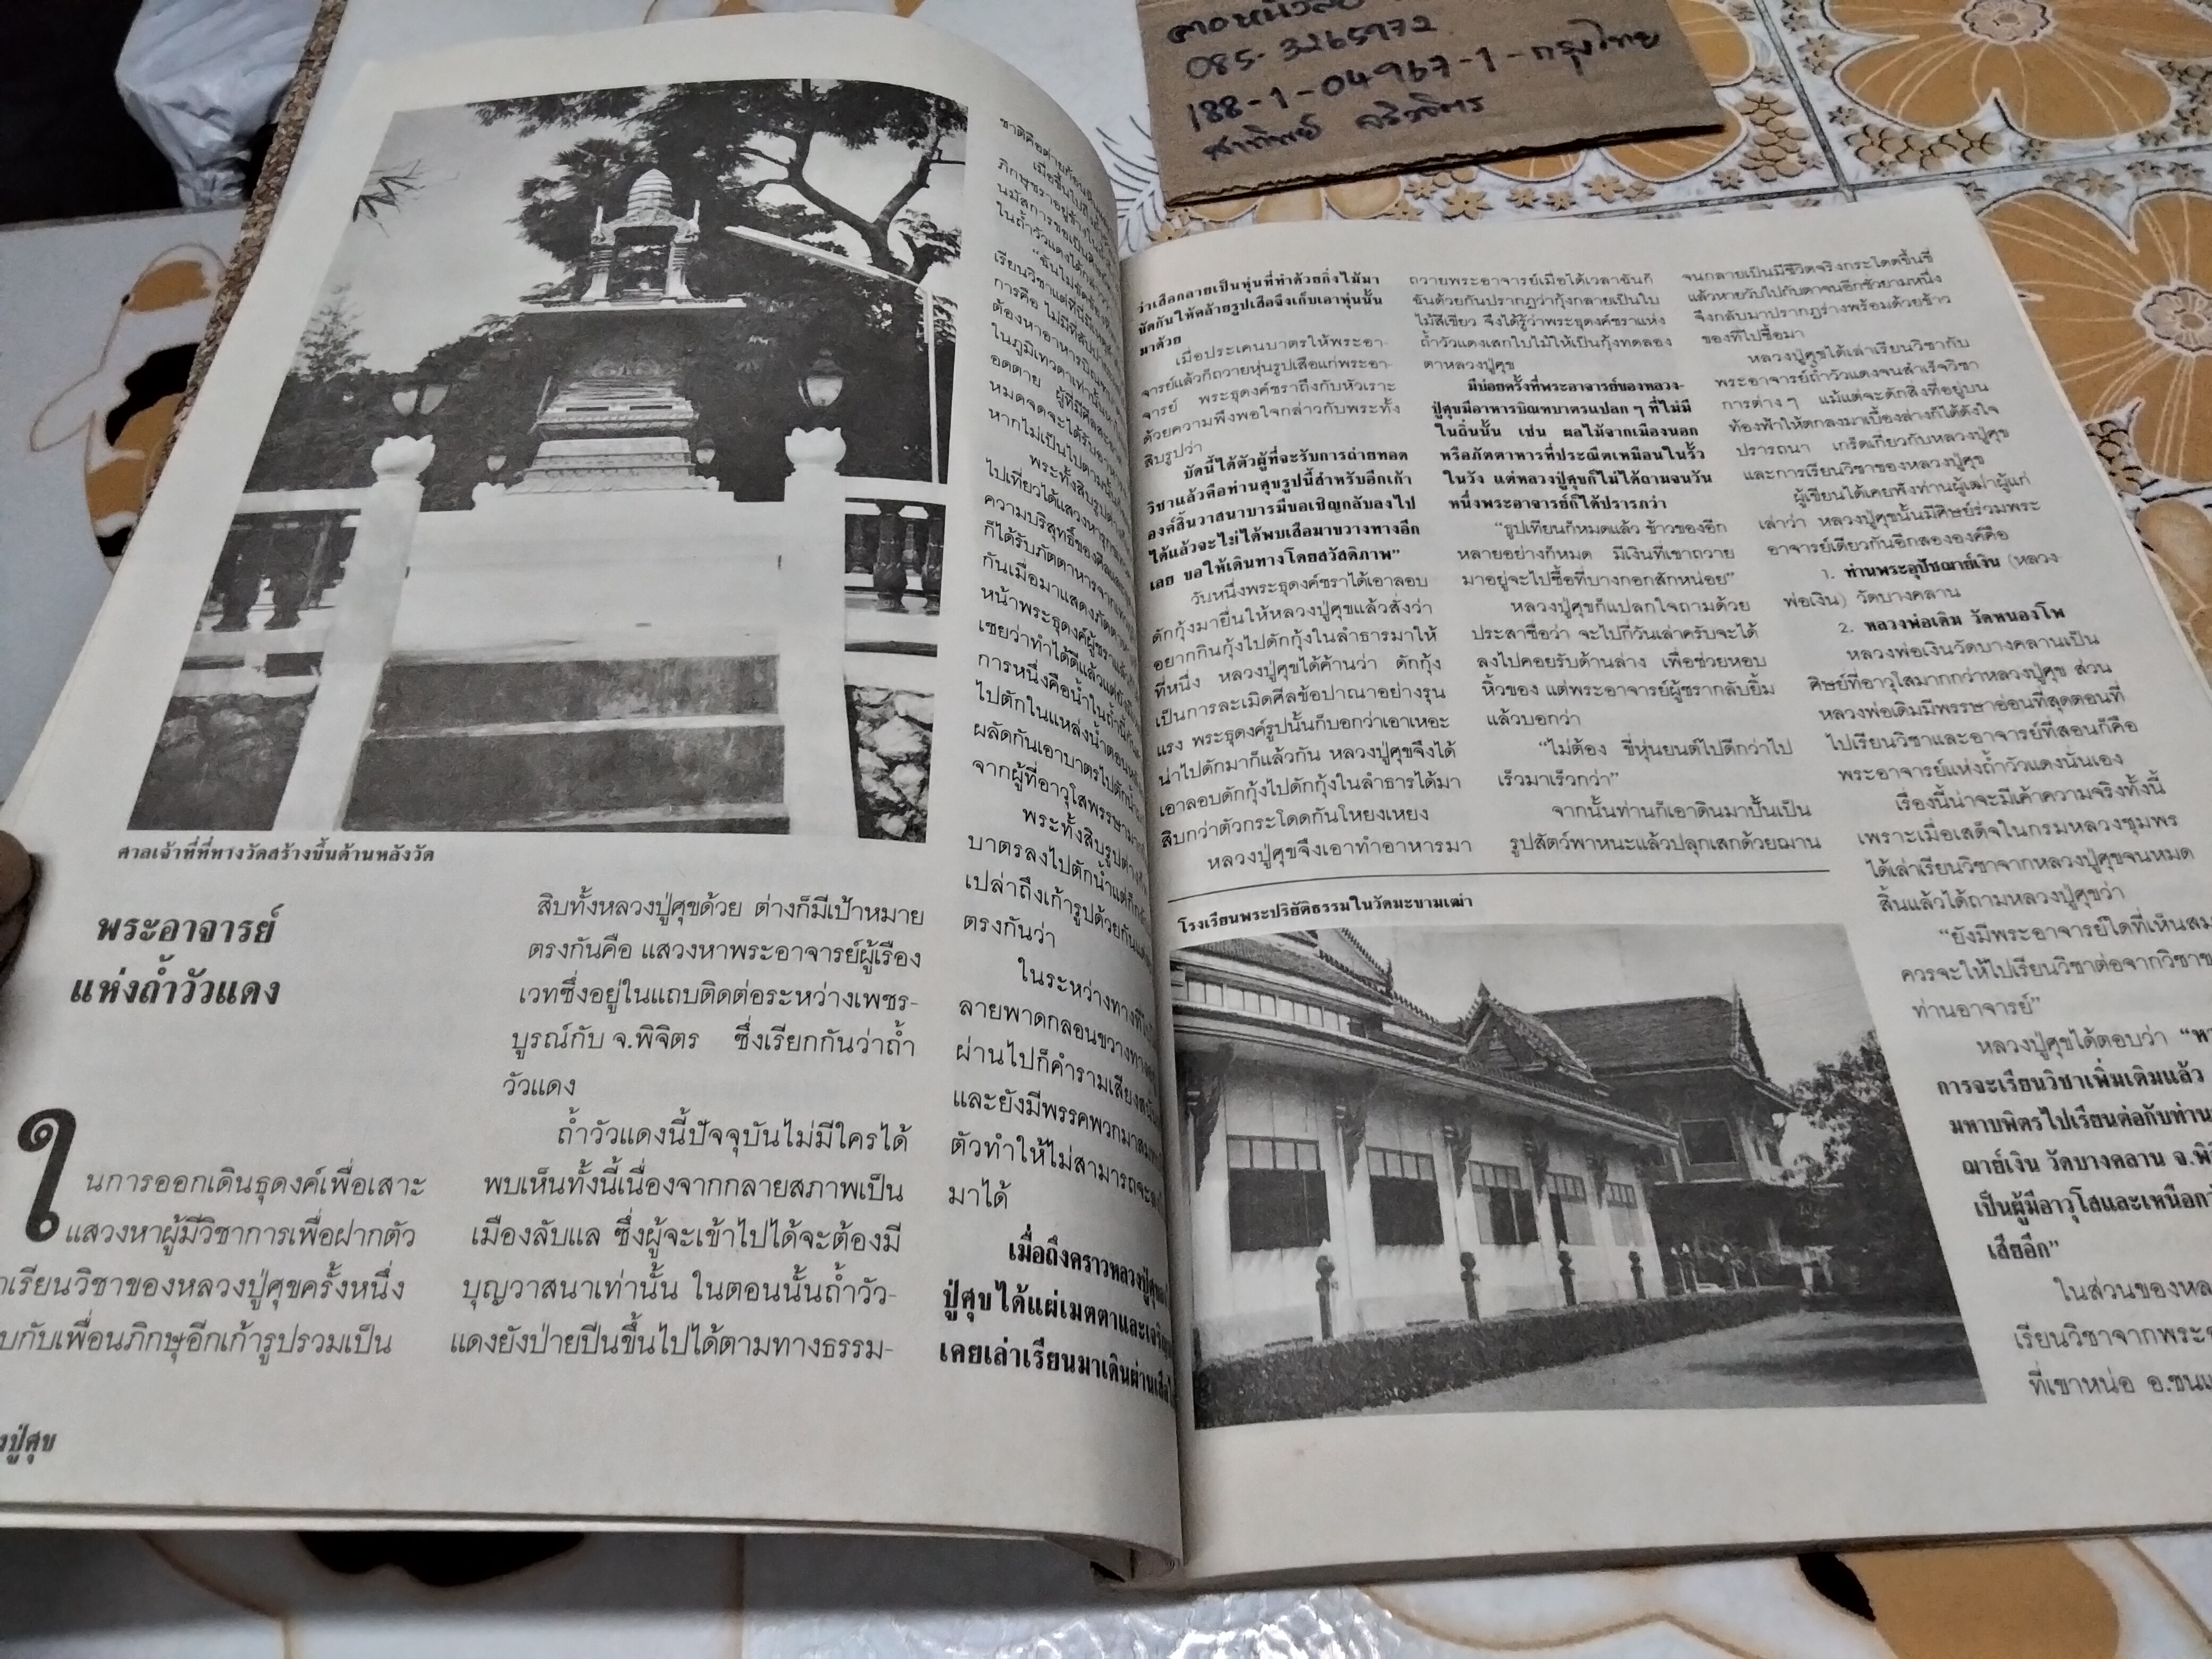 085-3265972
188-1-04967-1-กรุงไทย
ศาลเจ้าที่ที่ทางวัดสร้างขึ้นด้านหลังวัด
พระอาจารย์
แห่งถ้ำวัวแดง
ในการออกเดินธุดงค์เพื่อเสาะ
แสวงหาผู้มีวิชาการเพื่อฝากตัว
เรียนวิชาของหลวงปู่ศุขครั้งหนึ่ง
กับเพื่อนภิกษุอีกเก้ารูปรวมเป็น
ปู่ศุข
สิบทั้งหลวงปู่ศุขด้วย ต่างก็มีเป้าหมาย
ตรงกันคือ แสวงหาพระอาจารย์ผู้เรือง
เวทซึ่งอยู่ในแถบติดต่อระหว่างเพชร-
บูรณ์กับ จ.พิจิตร ซึ่งเรียกกันว่าถ้ำ
วัวแดง
ถ้ำวัวแดงนี้ปัจจุบันไม่มีใครได้
พบเห็นทั้งนี้เนื่องจากกลายสภาพเป็น
เมืองลับแล ซึ่งผู้จะเข้าไปได้จะต้องมี
บุญวาสนาเท่านั้น ในตอนนั้นถ้ำวัว-
แดงยังป่ายปีนขึ้นไปได้ตามทางธรรม-
ในถ้ำวัวแดงได้
"ฉันไม่ขัดข้อง
เรียนวิชาแต่ที่นี่มี
การคือ ไม่มี
ต้องหาอาหารบิณฑ
ในภูมิเทวดาเท่านั้น
อดตาย ผู้ที่มีศีล
หมดจดจะได้รับ
หากไม่เป็นไปตามนั้น
พระทั้งสิบรูป
ไปเที่ยวได้แสวงหา
ความบริสุทธิ์ของศีล
ก็ได้รับภัตตาหารจาก
กันเมื่อมาแสดงภัตตา
หน้าพระธุดงค์ผู้ชราแล้ว
เชยว่าทำได้ดีแล้วแต่ยัง
การหนึ่งคือน้ำในถ้ำนี้
ไปตักในแหล่งน้ำตอน
ผลัดกันเอาบาตรไปตักน้ำ
จากผู้ที่อาวุโสพรรษามาก
พระทั้งสิบรูปต่าง
บาตรลงไปตักน้ำแต่ก็
เปล่าถึงเก้ารูปด้วยกัน
ตรงกันว่า
ในระหว่างทางที่
ลายพาดกลอนขวางทาง
ผ่านไปก็คำรามเสียง
และยังมีพรรคพวกมา
ตัวทำให้ไม่สามารถจะ
มาได้
เมื่อถึงคราวหลวงปู่ศุข
ปู่ศุขได้แผ่เมตตาและเจริญ
เคยเล่าเรียนมาเดินผ่านเสือ
ว่าเสือกลายเป็นหุ่นที่ทำด้วยกิ่งไม้มา
ขัดกันให้คล้ายรูปเสือจึงเก็บเอาหุ่นนั้น
มาด้วย
เมื่อประเคนบาตรให้พระอา-
จารย์แล้วก็ถวายหุ่นรูปเสือแก่พระอา-
จารย์ พระธุดงค์ชราถึงกับหัวเราะ
ด้วยความพึงพอใจกล่าวกับพระทั้ง
สิบรูปว่า
บัดนี้ได้ตัวผู้ที่จะรับการถ่ายทอด
วิชาแล้วคือท่านศุขรูปนี้สำหรับอีกเก้า
องค์สิ้นวาสนาบารมีขอเชิญกลับลงไป
ได้แล้วจะไม่ได้พบเสือมาขวางทางอีก
เลย ขอให้เดินทางโดยสวัสดิภาพ"
วันหนึ่งพระธุดงค์ชราได้เอาลอบ
ดักกุ้งมายื่นให้หลวงปู่ศุขแล้วสั่งว่า
อยากกินกุ้งไปดักกุ้งในลำธารมาให้
ที่หนึ่ง หลวงปู่ศุขได้ค้านว่า ดักกุ้ง
เป็นการละเมิดศีลข้อปาณาอย่างรุน
แรง พระธุดงค์รูปนั้นก็บอกว่าเอาเหอะ
น่าไปดักมาก็แล้วกัน หลวงปู่ศุขจึงได้
เอาลอบดักกุ้งไปดักกุ้งในลำธารได้มา
สิบกว่าตัวกระโดดกันโหยงเหยง
หลวงปู่ศุขจึงเอาทำอาหารมา
ถวายพระอาจารย์เมื่อได้เวลาฉันก็
ฉันด้วยกันปรากฏว่ากุ้งกลายเป็นใบ
ไม้สีเขียว จึงได้รู้ว่าพระธุดงค์ชราแห่ง
ถ้ำวัวแดงเสกใบไม้ให้เป็นกุ้งทดลอง
ตาหลวงปู่ศุข
มีบ่อยครั้งที่พระอาจารย์ของหลวง-
ปู่ศุขมีอาหารบิณฑบาตรแปลก ๆ ที่ไม่มี
ในถิ่นนั้น เช่น ผลไม้จากเมืองนอก
หรือภัตตาหารที่ประณีตเหมือนในรั้ว
ในวัง แต่หลวงปู่ศุขก็ไม่ได้ถามจนวัน
หนึ่งพระอาจารย์ก็ได้ปรารภว่า
"ธูปเทียนก็หมดแล้ว ข้าวของอีก
หลายอย่างก็หมด มีเงินที่เขาถวาย
มาอยู่จะไปซื้อที่บางกอกสักหน่อย"
หลวงปู่ศุขก็แปลกใจถามด้วย
ประสาซื่อว่า จะไปกี่วันเล่าครับจะได้
ลงไปคอยรับด้านล่าง เพื่อช่วยหอบ
หิ้วของ แต่พระอาจารย์ผู้ชรากลับยิ้ม
แล้วบอกว่า
"ไม่ต้อง ขี่หุ่นยนต์ไปดีกว่าไป
เร็วมาเร็วกว่า"
จากนั้นท่านก็เอาดินมาปั้นเป็น
รูปสัตว์พาหนะแล้วปลุกเสกด้วยฌาน
โรงเรียนพระปริยัติธรรมในวัดมะขามเฒ่า
จนกลายเป็นมีชีวิตจริงกระโดดขึ้นขี่
แล้วหายวับไปกับตาจนอีกชั่วยามหนึ่ง
จึงกลับมาปรากฏร่างพร้อมด้วยข้าว
ของที่ไปซื้อมา
หลวงปู่ศุขได้เล่าเรียนวิชากับ
พระอาจารย์ถ้ำวัวแดงจนสำเร็จวิชา
การต่าง ๆ แม้แต่จะดักสิ่งที่อยู่บน
ท้องฟ้าให้ตกลงมาเบื้องล่างก็ได้ดังใจ
ปรารถนา เกร็ดเกี่ยวกับหลวงปู่ศุข
และการเรียนวิชาของหลวงปู่ศุข
ผู้เขียนได้เคยฟังท่านผู้เฒ่าผู้แก่
เล่าว่า หลวงปู่ศุขนั้นมีศิษย์ร่วมพระ
อาจารย์เดียวกันอีกสององค์คือ
1. ท่านพระอุปัชฌาย์เงิน (หลวง-
พ่อเงิน) วัดบางคลาน
2. หลวงพ่อเดิม วัดหนองโพ
หลวงพ่อเงินวัดบางคลานเป็น
ศิษย์ที่อาวุโสมากกว่าหลวงปู่ศุข ส่วน
หลวงพ่อเดิมมีพรรษาอ่อนที่สุดตอนที่
ไปเรียนวิชาและอาจารย์ที่สอนก็คือ
พระอาจารย์แห่งถ้ำวัวแดงนั่นเอง
เรื่องนี้น่าจะมีเค้าความจริงทั้งนี้
เพราะเมื่อเสด็จในกรมหลวงชุมพร
ได้เล่าเรียนวิชาจากหลวงปู่ศุขจนหมด
สิ้นแล้วได้ถามหลวงปู่ศุขว่า
"ยังมีพระอาจารย์ใดที่เห็นสม
ควรจะให้ไปเรียนวิชาต่อจากวิชาข
ท่านอาจารย์"
หลวงปู่ศุขได้ตอบว่า "ห
การจะเรียนวิชาเพิ่มเติมแล้ว
มหาบพิตรไปเรียนต่อกับท่าน
ฌาย์เงิน วัดบางคลาน จ.พิ
เป็นผู้มีอาวุโสและเหนือก
เสียอีก"
ในส่วนของหล
เรียนวิชาจากพระ
ที่เขาหน่อ อ.